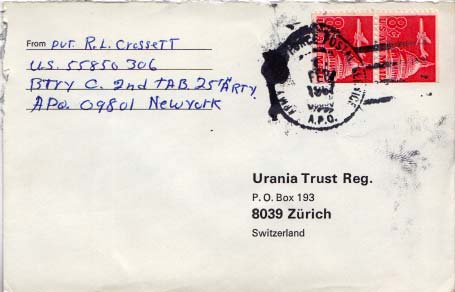 From Pvt. R.L. Crossett
US. 55850306
BTRY C. 2nd TAB 25th ARTY.
APO. 09801 New York
FEB
A.P.O.
8¢
8¢
Urania Trust Reg.
P. O. Box 193
8039 Zürich
Switzerland